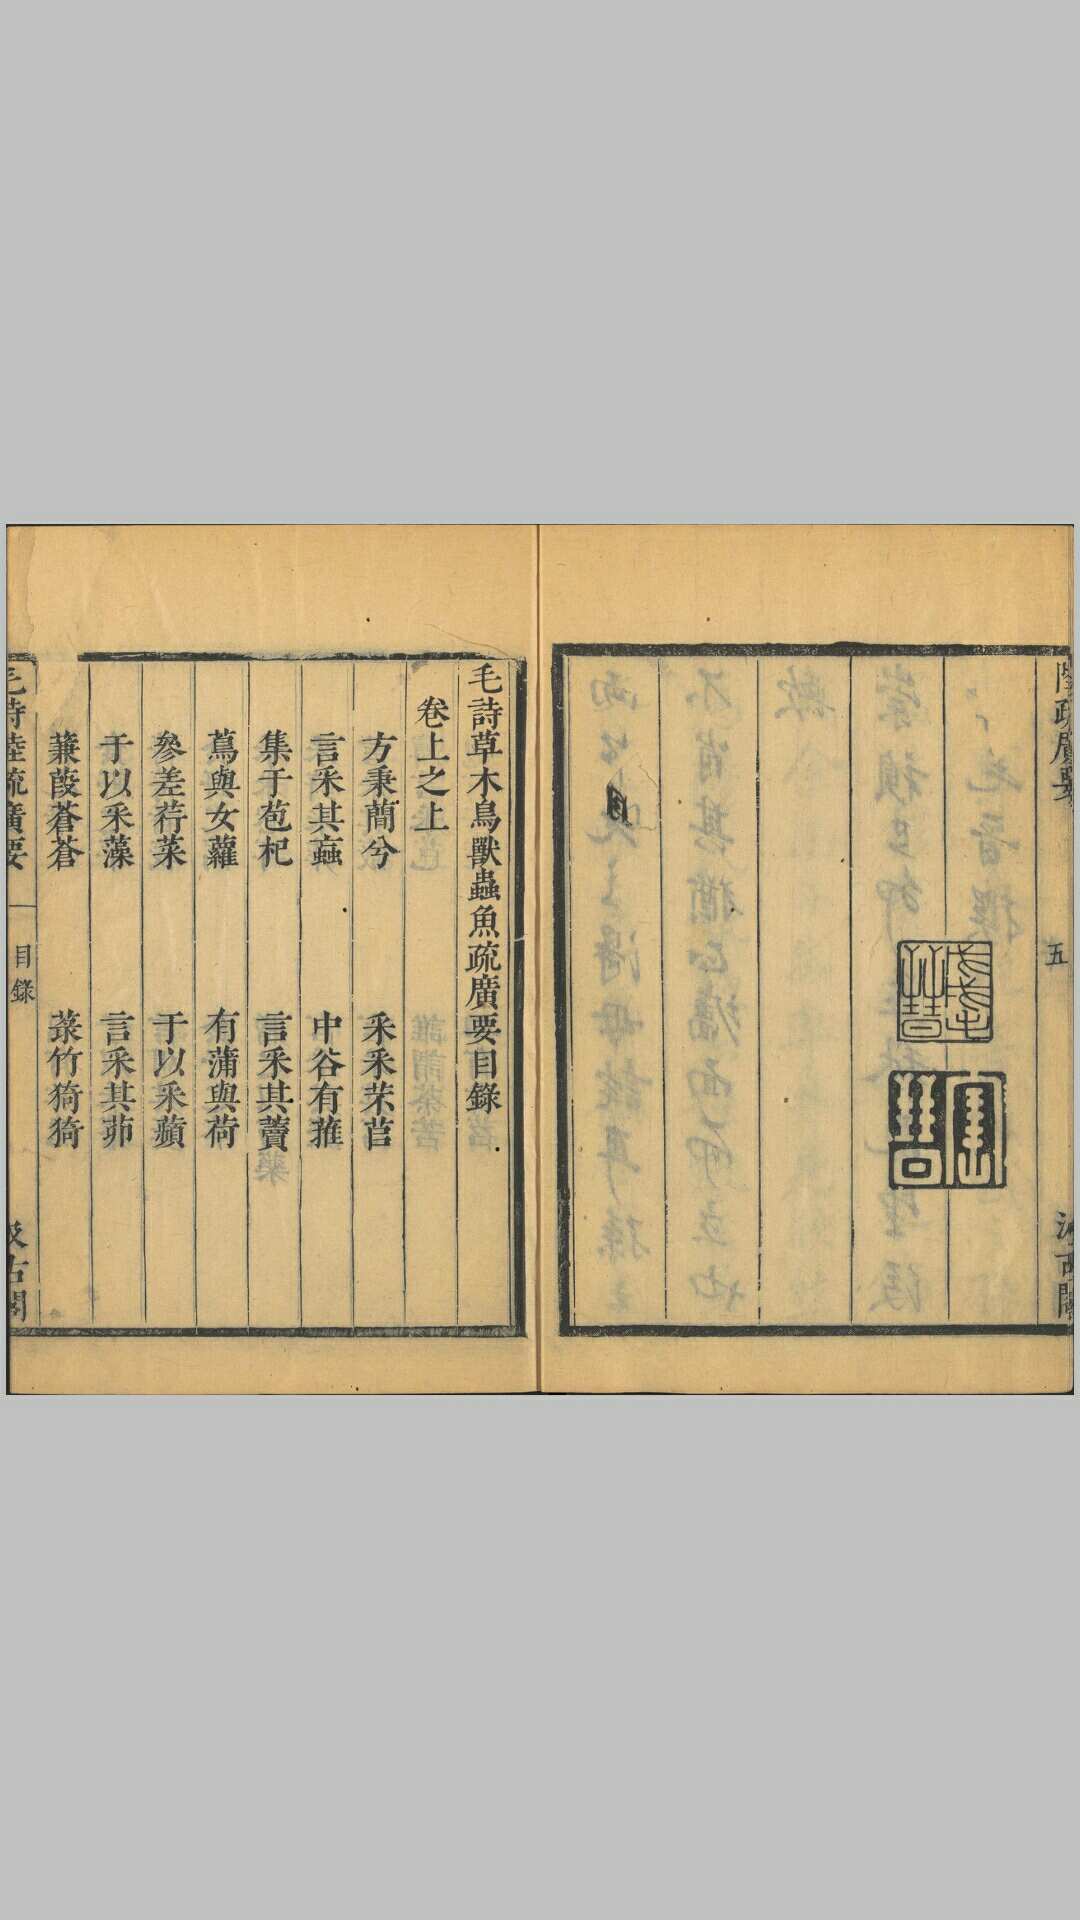 陸疏廣要
五
汲古閣
毛詩草木鳥獸蟲魚疏廣要目錄
卷上之上
方秉蕳兮
采采芣苢
言采其蝱
中谷有蓷
集于苞杞
言采其藚
蔦與女蘿
有蒲與荷
參差荇菜
于以采蘋
于以采藻
言采其茆
蒹葭蒼蒼
菉竹猗猗
毛詩陸疏廣要
目錄
汲古閣